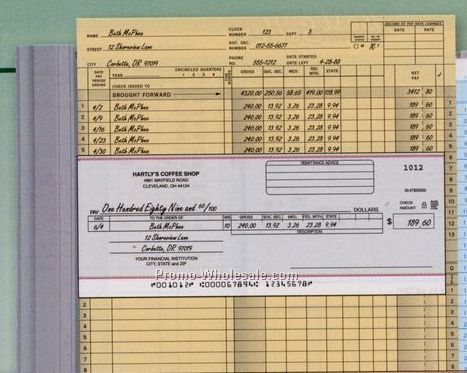 RECORD OF PAY RATE CHANGES
NAME Beth McPhee CLOCK NUMBER 123 DEPT 5 DATE RATE DATE RATE
STREET 12 Shoreview Lane SOC. SEC. NUMBER 012-55-6677
CITY Corbetta, OR 97019 PHONE NO. 555-1212 DATE STARTED DATE LEFT 4-28-88
DATE PAY PERIOD ENDING YEAR ENCIRCLED QUARTERS 1 2 3 4 GROSS SOC. SEC. MED. FED. WITH. STATE NET PAY
CHECK ISSUED TO
BROUGHT FORWARD 4320.00 250.56 58.66 419.00 178.99 3412 80
4/2 Beth McPhee 240.00 13.92 3.26 23.28 9.94 189 60
4/9 Beth McPhee 240.00 13.92 3.26 23.28 9.94 189 60
4/16 Beth McPhee 240.00 13.92 3.26 23.28 9.94 189 60
4/23 Beth McPhee 240.00 13.92 3.26 23.28 9.94 189 60
4/30 Beth McPhee 240.00 13.92 3.26 23.28 9.94 189 60
REMITTANCE ADVICE
1012
HARTLY'S COFFEE SHOP
4861 MAYFIELD ROAD
CLEVELAND, OH 44124
PAY One Hundred Eighty Nine and 60/100 DOLLARS
CHECK AMOUNT
DATE TO THE ORDER OF HRS GROSS SOC. SEC. MED. FED. WITH. STATE
6/4 Beth McPhee 10 240.00 13.92 3.26 23.28 9.94 $ 189 60
DESCRIPTION
12 Shoreview Lane
Corbetta, OR 97019
YOUR FINANCIAL INSTITUTION
CITY, STATE and ZIP
Promo-Wholesale.com
001012 000067894 12345678